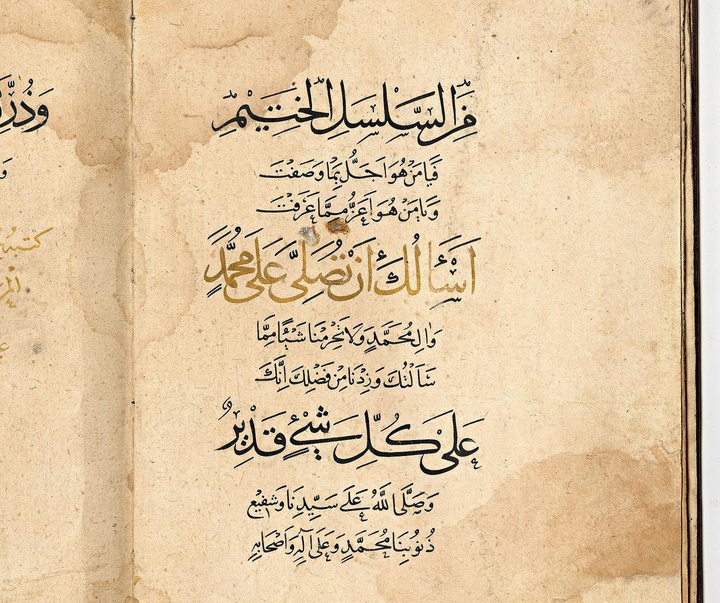 مِنَ السَّلْسَلِ الْخَتِيمِ
فَيَا مَنْ هُوَ اَجَلُّ مِمَّا وَصَفْتَ
وَيَا مَنْ هُوَ اَعَزُّ مِمَّا عَرَفْتَ
اَسْأَلُكَ اَنْ تُصَلِّىَ عَلَى مُحَمَّدٍ
وَاٰلِ مُحَمَّدٍ وَلَا تَحْرِمْنَا شَيْئًا مِمَّا
سَاَلْتُكَ وَزِدْنَا مِنْ فَضْلِكَ اِنَّكَ
عَلَى كُلِّ شَيْءٍ قَدِيرٌ
وَصَلَّى اللّٰهُ عَلَى سَيِّدِنَا وَشَفِيعِ
ذُنُوبِنَا مُحَمَّدٍ وَعَلَى آلِهِ وَاَصْحَابِهِ
كتبه